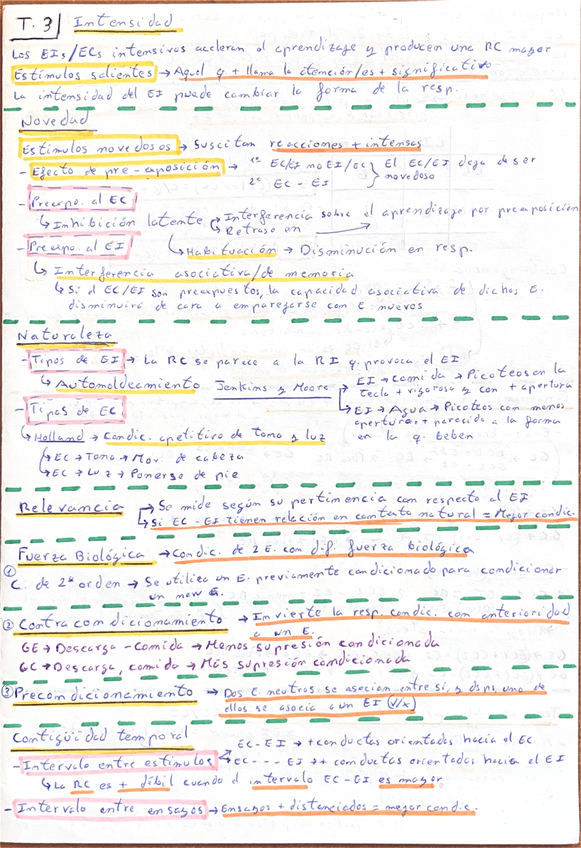 T. 3 Intensidad
Los EIs/ECs intensivos aceleran el aprendizaje y producen una RC mayor
Estímulos salientes → Aquel q + llama la atención/es + significativo
La intensidad del EI puede cambiar la forma de la resp.
Novedad
Estímulos novedosos → Suscitan reacciones + intensas
- Efecto de pre-exposición → 1º EC/EI no EI/EC } El EC/EI deja de ser
2º EC - EI } novedoso
- Preexpo. al EC
↳ Inhibición latente → Interferencia sobre el aprendizaje por preexposición
→ Retraso en
- Preexpo. al EI ↳ Habituación → Disminución en resp.
↳ Interferencia asociativa/de memoria
↳ Si el EC/EI son preexpuestos, la capacidad asociativa de dichos E.
disminuirá de cara a emparejarse con E nuevos
Naturaleza
- Tipos de EI → La RC se parece a la RI q. provoca el EI
↳ Automoldeamiento Jenkins y Moore → EI → Comida → Picoteos en la
tecla + vigorosa y con + apertura
- Tipos de EC
→ EI → Agua → Picoteos con menos
apertura + parecido a la forma
en la q. beben
↳ Holland → Condic. apetitivo de tono y luz
↳ EC → Tono → Mov. de cabeza
↳ EC → Luz → Ponerse de pie
Relevancia → Se mide según su pertinencia con respecto al EI
↳ Si EC - EI tienen relación en contexto natural = Mejor condic.
Fuerza Biológica → Condic. de 2 E. con dif. fuerza biológica
① C. de 2º orden → Se utiliza un E. previamente condicionado para condicionar
un new E.
② Contracondicionamiento → Invierte la resp. condic. con anterioridad
a un E.
GE → Descarga - Comida → Menos supresión condicionada
GC → Descarga, comida → Más supresión condicionada
③ Precondicionamiento → Dos E neutros se asocian entre sí, y dsps uno de
ellos se asocia a un EI (V/x)
Contigüidad temporal
- Intervalo entre estímulos → EC - EI → + conductas orientadas hacia el EC
→ EC - - - EI → + conductas orientadas hacia el EI
↳ La RC es + débil cuando el intervalo EC - EI es mayor
- Intervalo entre ensayos → Ensayos + distanciados = mejor condic.